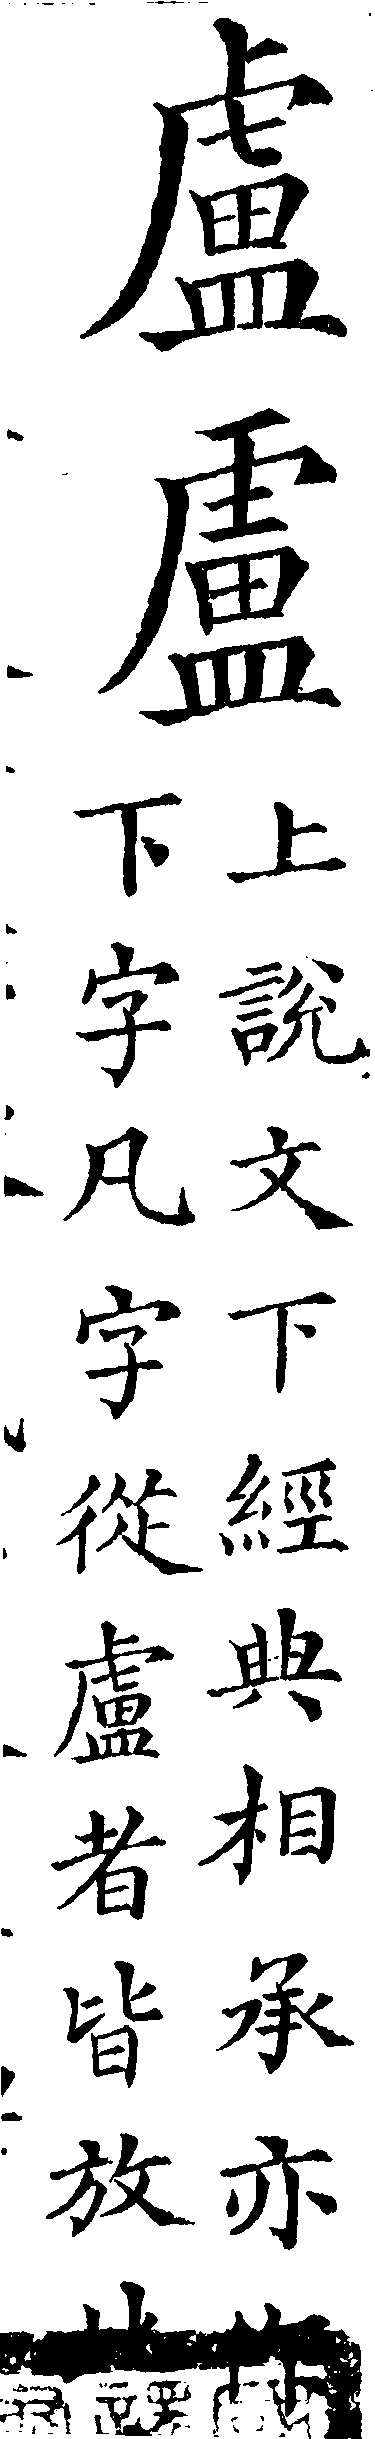 盧𮉡
上說文下經典相承亦
下字凡字從盧者皆放